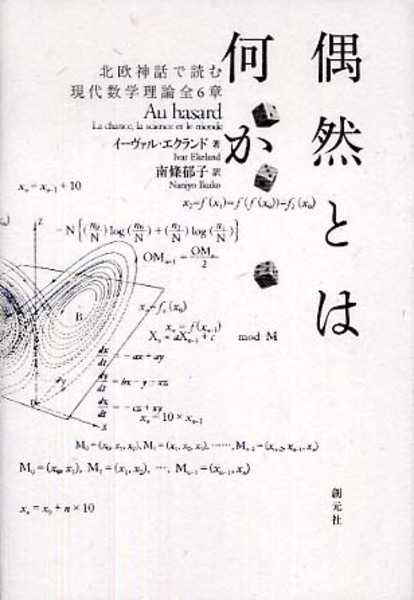 偶然とは
何か
北欧神話で読む
現代数学理論全6章
Au hasard
La chance, la science et le monde
イーヴァル・エクランド 著
Ivar Ekeland
南條郁子 訳
Nanjyo Ikuko
xₙ = xₙ₋₁ + 10
x₂=f(x₁)=f(f(x₀))=f₂(x₀)
OMₙ₊₁ = OMₙ/2
Z
B
xₙ=fₙ(x₀)
xₙ = f(xₙ₋₁)
Xₙ = aXₙ₋₁ + c mod M
dx/dt = -ax+ay
dy/dt = bx-y-xz
dz/dt = -cz+xy
xₙ = 10 × xₙ₋₁
X
M₀=(x₀, x₁, x₂), M₁=(x₁, x₂, x₃), ……, Mₙ₋₂=(xₙ₋₂, xₙ₋₁, xₙ)
M₀=(x₀, x₁), M₁=(x₁, x₂), …, Mₙ₋₁=(xₙ₋₁, xₙ)
xₙ = x₀ + n × 10
創元社